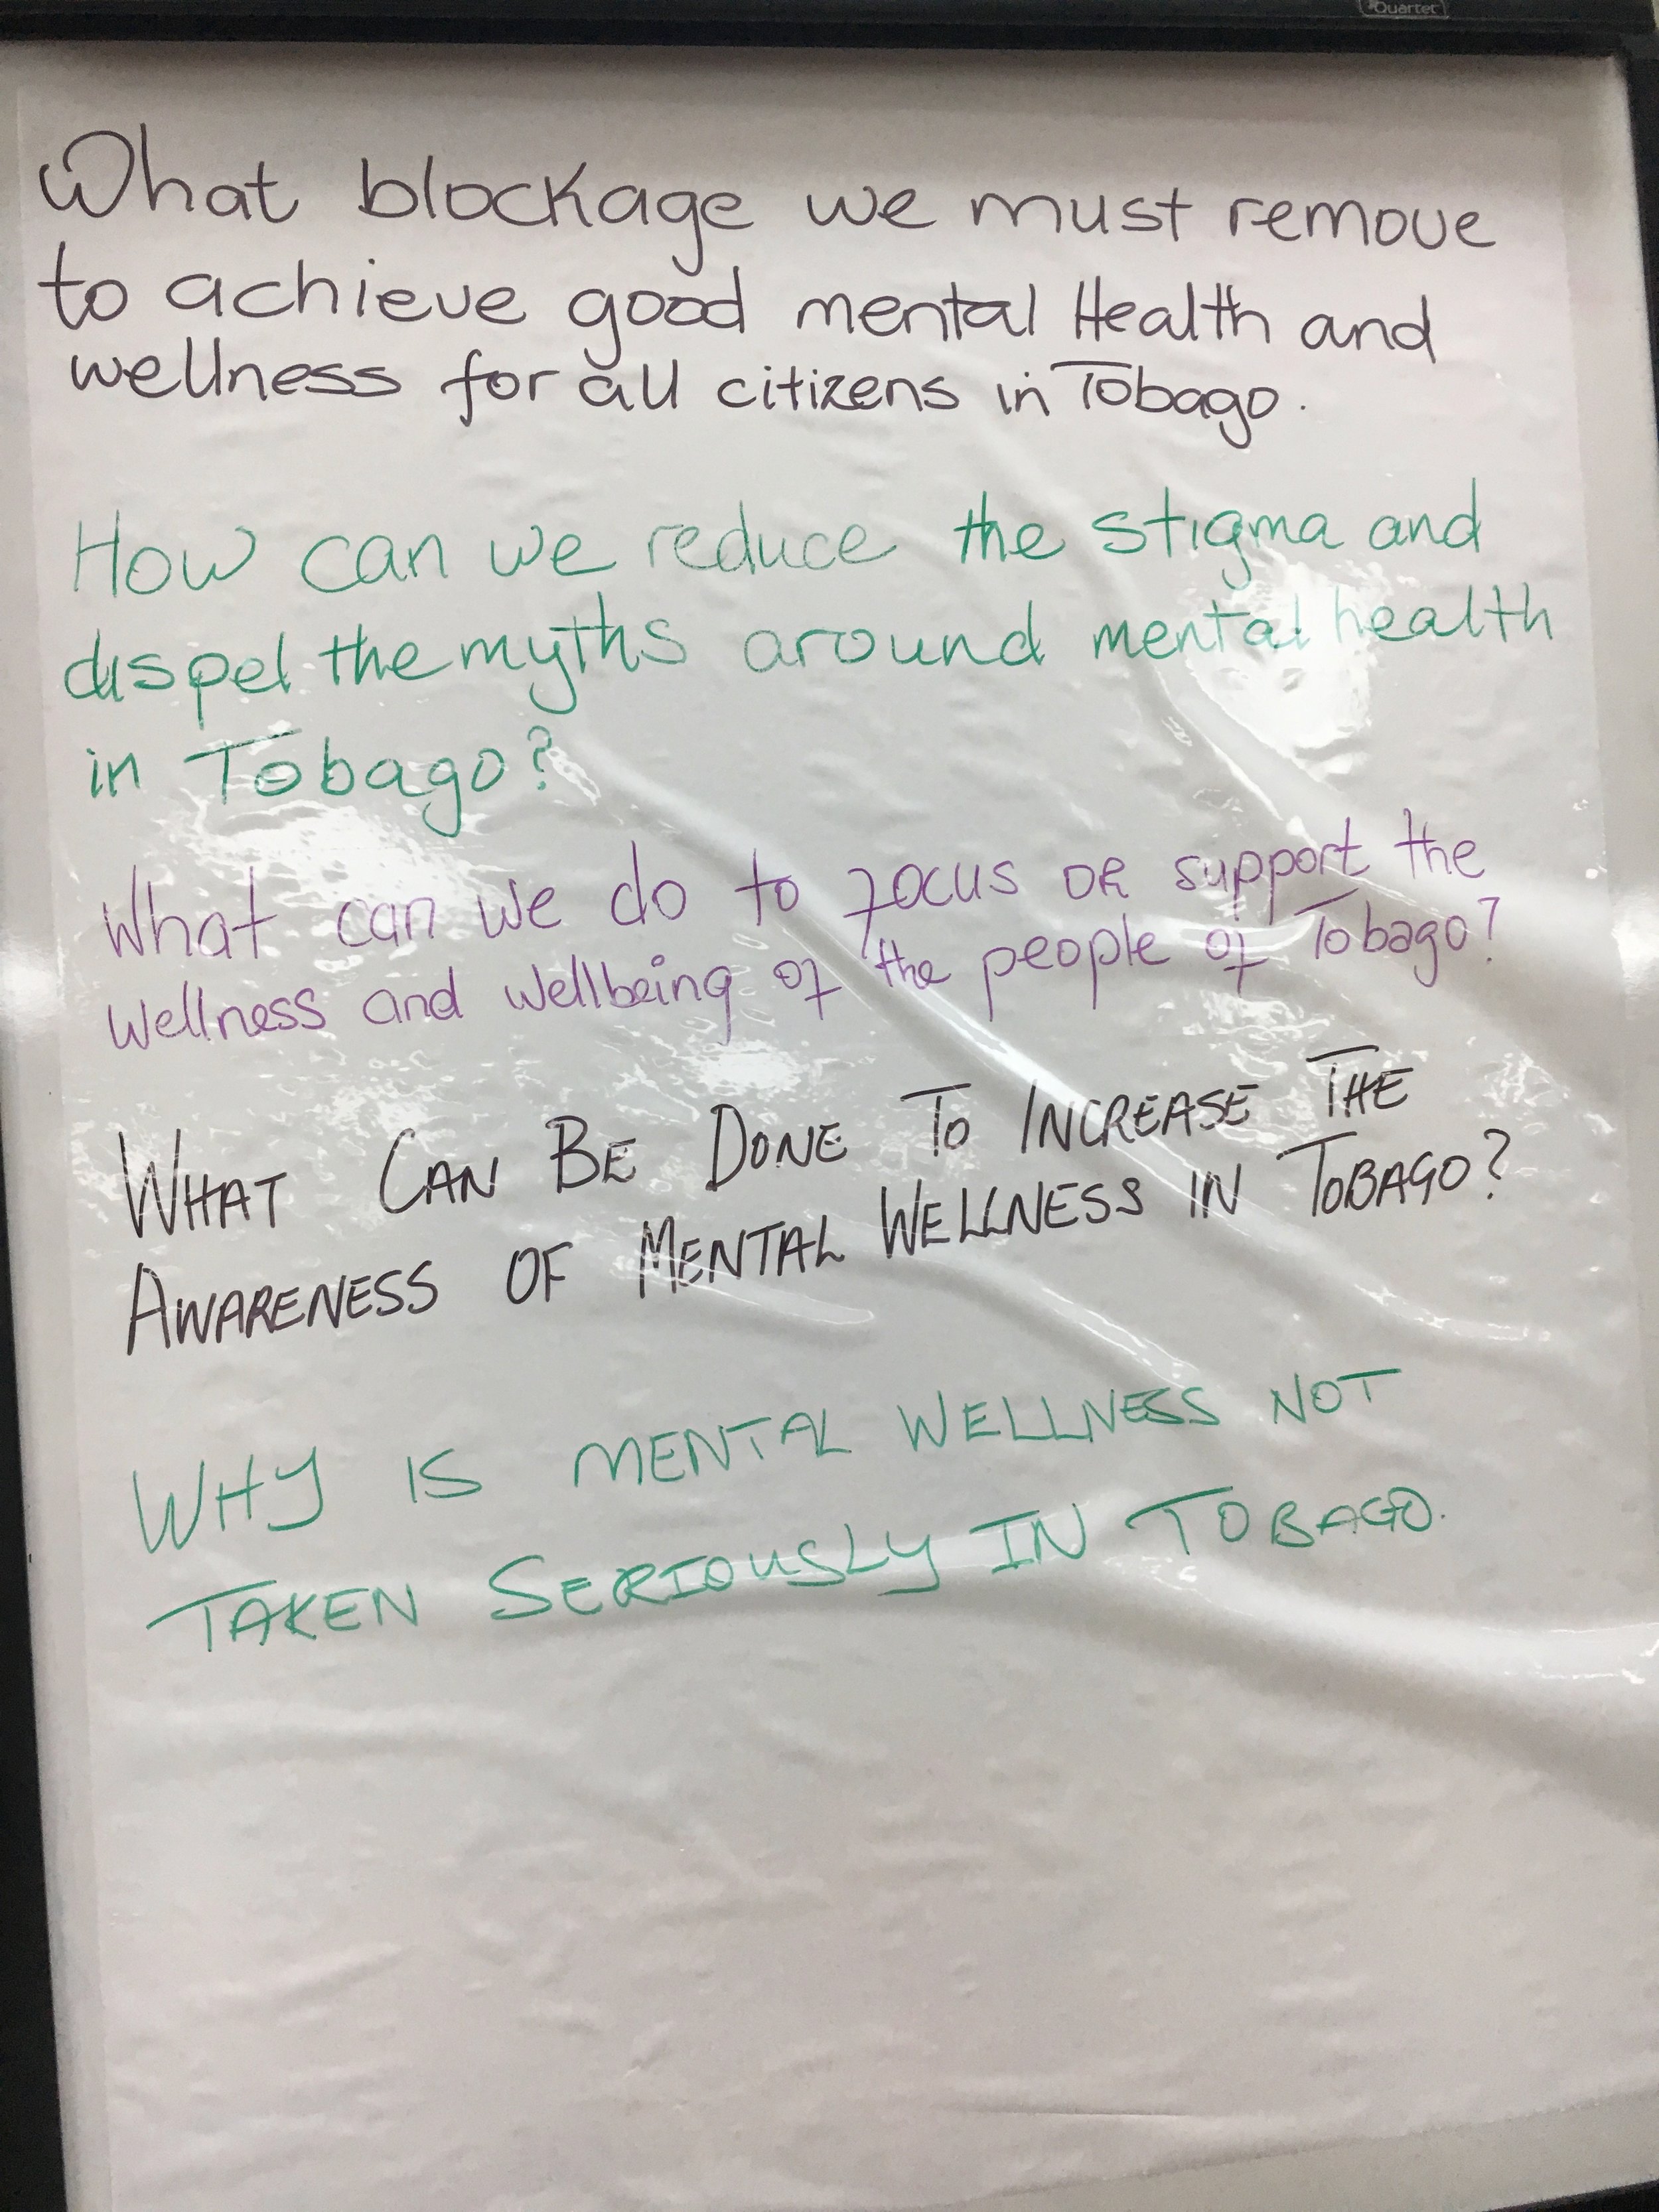 Quartet
What blockage we must remove
to achieve good mental Health and
wellness for all citizens in Tobago.
How can we reduce the stigma and
dispel the myths around mental health
in Tobago?
What can we do to focus OR support the
Wellness and Wellbeing of the people of Tobago?
WHAT CAN BE DONE TO INCREASE THE
AWARENESS OF MENTAL WELLNESS IN TOBAGO?
WHY IS MENTAL WELLNESS NOT
TAKEN SERIOUSLY IN TOBAGO.